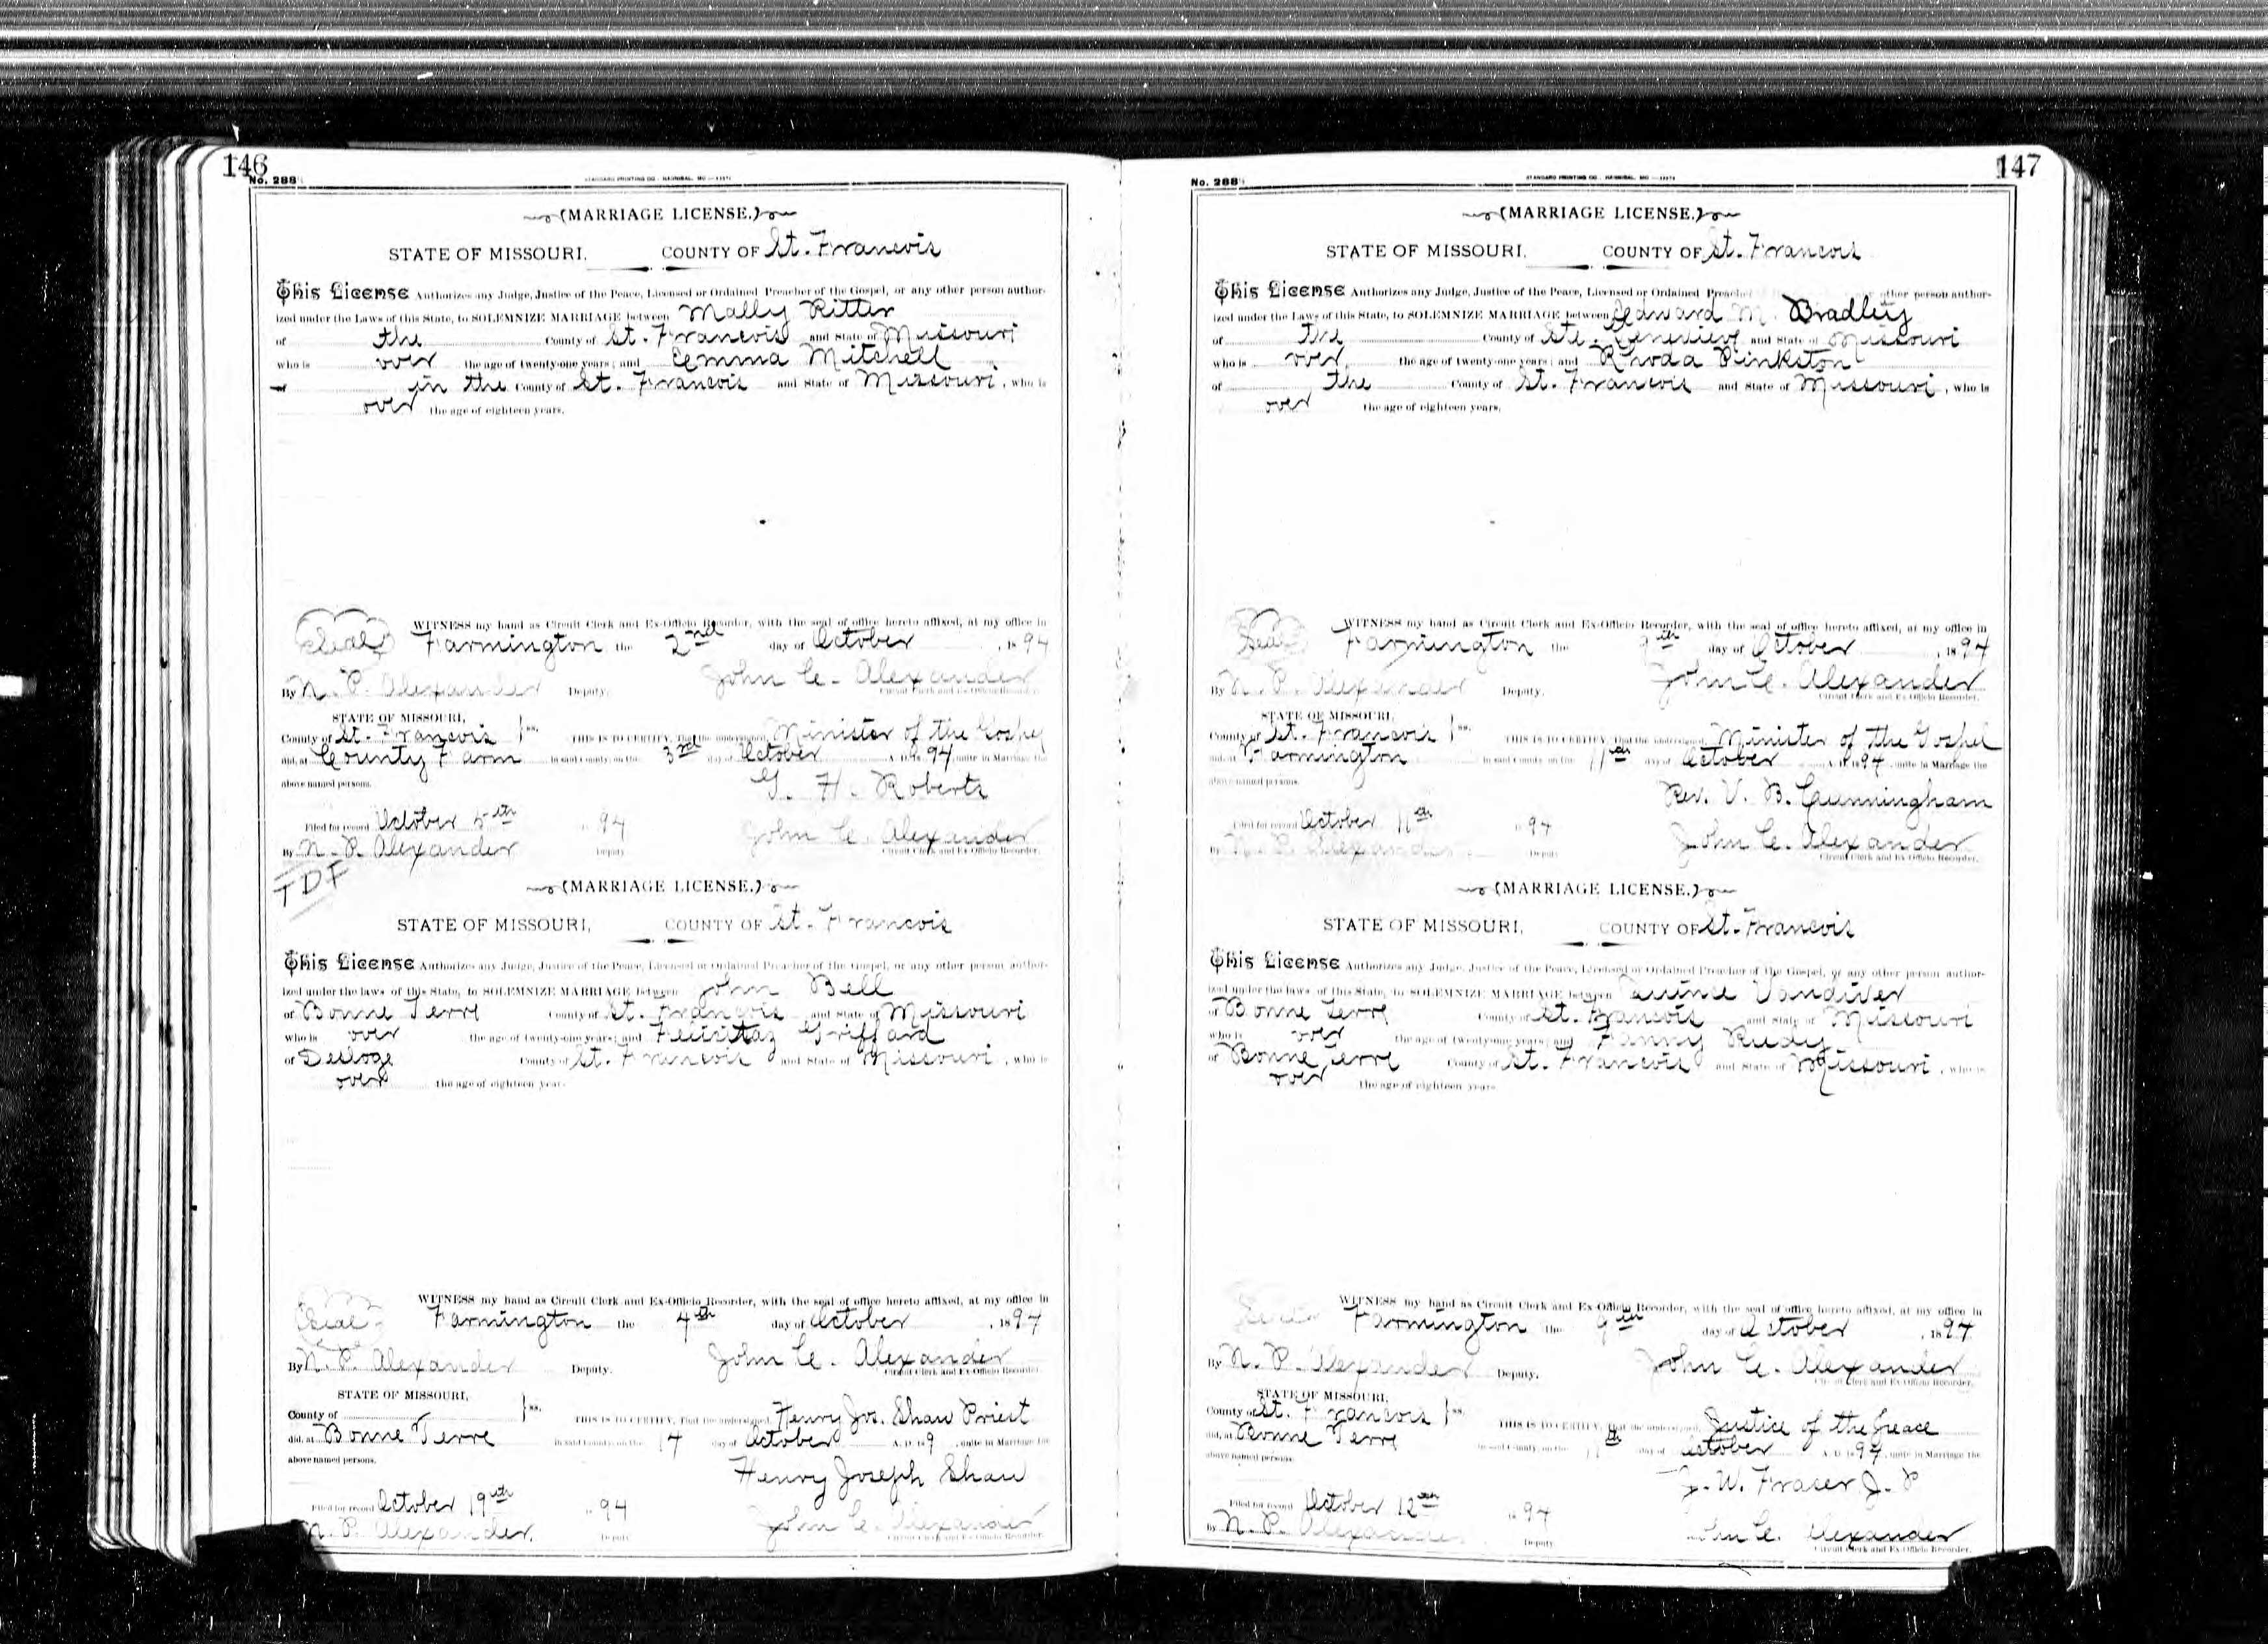 146
No. 288
STANDARD PRINTING CO., HANNIBAL, MO
(MARRIAGE LICENSE.)
STATE OF MISSOURI, COUNTY OF St. Francois
This License Authorizes any Judge, Justice of the Peace, Licensed or Ordained Preacher of the Gospel, or any other person author-
ized under the Laws of this State, to SOLEMNIZE MARRIAGE between Mally Ritter
of the County of St. Francois and State of Missouri
who is over the age of twenty-one years; and Emma Mitchell
of in the County of St. Francois and State of Missouri, who is
over the age of eighteen years.
WITNESS my hand as Circuit Clerk and Ex-Officio Recorder, with the seal of office hereto affixed, at my office in
Seal Farmington the 2nd day of October, 1894
By N. P. Alexander Deputy. John C. Alexander
Circuit Clerk and Ex-Officio Recorder.
STATE OF MISSOURI,
County of St. Francois ss. THIS IS TO CERTIFY, That the undersigned Minister of the Gospel
did, at County Farm in said County, on the 3rd day of October A. D. 1894 unite in Marriage the
above named persons. G. H. Roberts
Filed for record October 5th 1894 John C. Alexander
By N. P. Alexander Deputy Circuit Clerk and Ex-Officio Recorder.
TDF
(MARRIAGE LICENSE.)
STATE OF MISSOURI, COUNTY OF St. Francois
This License Authorizes any Judge, Justice of the Peace, Licensed or Ordained Preacher of the Gospel, or any other person author-
ized under the laws of this State, to SOLEMNIZE MARRIAGE between John Bell
of Bonne Terre County of St. Francois and State of Missouri
who is over the age of twenty-one years; and Felicittaz Griffard
of Desloge County of St. Francois and State of Missouri, who is
over the age of eighteen years.
WITNESS my hand as Circuit Clerk and Ex-Officio Recorder, with the seal of office hereto affixed, at my office in
Seal Farmington the 4th day of October, 1894
By N. P. Alexander Deputy. John C. Alexander
Circuit Clerk and Ex-Officio Recorder.
STATE OF MISSOURI,
County of ss. THIS IS TO CERTIFY, That the undersigned Henry Jos. Shaw Priest
did, at Bonne Terre in said County, on the 17 day of October A. D. 189 , unite in Marriage the
above named persons. Henry Joseph Shaw
Filed for record October 19th 1894 John C. Alexander
N. P. Alexander. Deputy Circuit Clerk and Ex-Officio Recorder.
147
No. 288
STANDARD PRINTING CO., HANNIBAL, MO
(MARRIAGE LICENSE.)
STATE OF MISSOURI, COUNTY OF St. Francois
This License Authorizes any Judge, Justice of the Peace, Licensed or Ordained Preacher other person author-
ized under the Laws of this State, to SOLEMNIZE MARRIAGE between Edward M. Bradley
of the County of Ste. Genevieve and State of Missouri
who is over the age of twenty-one years; and Rhoda Pinkston
of the County of St. Francois and State of Missouri, who is
over the age of eighteen years.
WITNESS my hand as Circuit Clerk and Ex-Officio Recorder, with the seal of office hereto affixed, at my office in
Seal Farmington the 9th day of October, 1894
By N. P. Alexander Deputy. John C. Alexander
Circuit Clerk and Ex-Officio Recorder.
STATE OF MISSOURI,
County of St. Francois ss. THIS IS TO CERTIFY, That the undersigned Minister of the Gospel
did, at Farmington in said County, on the 11th day of October A. D. 1894, unite in Marriage the
above named persons. Rev. V. B. Cunningham
Filed for record October 11th 1894 John C. Alexander
By N. P. Alexander Deputy Circuit Clerk and Ex-Officio Recorder.
(MARRIAGE LICENSE.)
STATE OF MISSOURI, COUNTY OF St. Francois
This License Authorizes any Judge, Justice of the Peace, Licensed or Ordained Preacher of the Gospel, or any other person author-
ized under the laws of this State, to SOLEMNIZE MARRIAGE between Vandiver
of Bonne Terre County of St. Francois and State of Missouri
who is over the age of twenty-one years; and Fanny Rudy
of Bonne Terre County of St. Francois and State of Missouri, who is
over the age of eighteen years.
WITNESS my hand as Circuit Clerk and Ex-Officio Recorder, with the seal of office hereto affixed, at my office in
Seal Farmington the 9th day of October, 1894
By N. P. Alexander Deputy. John C. Alexander
Circuit Clerk and Ex-Officio Recorder.
STATE OF MISSOURI,
County of St. Francois ss. THIS IS TO CERTIFY, that the undersigned Justice of the Peace
did, at Bonne Terre in said County, on the 11th day of October A. D. 1894, unite in Marriage the
above named persons. J. W. Fraser J. P
Filed for record October 12th 1894 John C. Alexander
By N. P. Alexander Deputy Circuit Clerk and Ex-Officio Recorder.